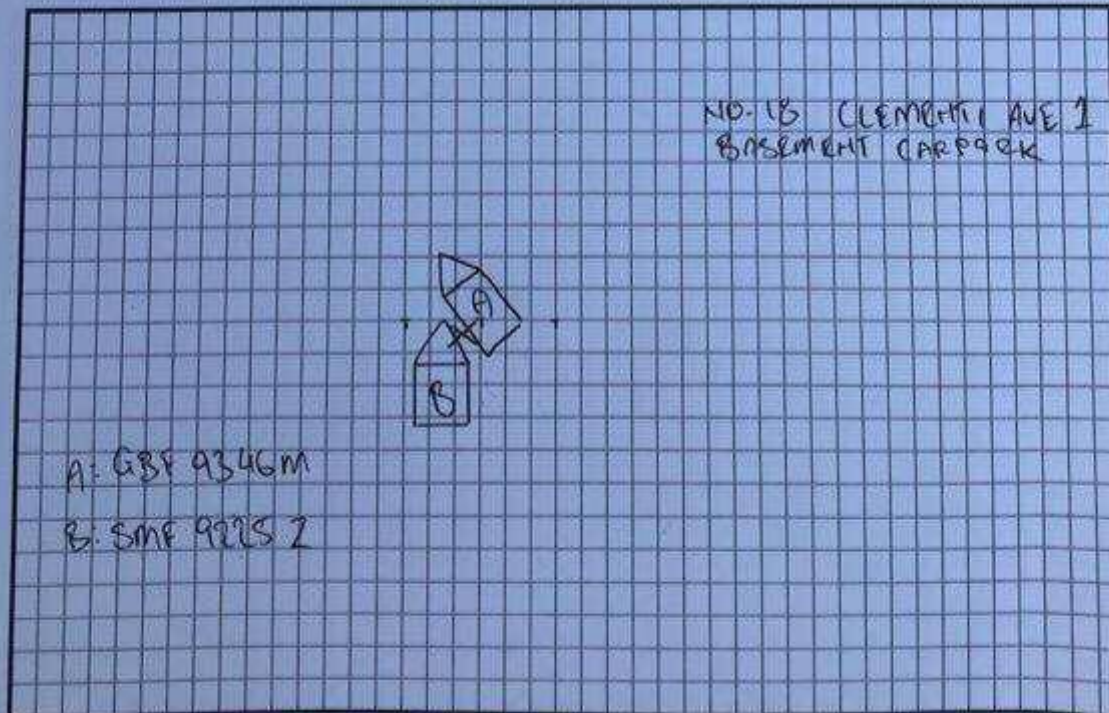 NO. 18 CLEMENTI AVE 1
BASEMENT CARPARK
A
B
A: GBF 9346M
B: SMF 9225 Z